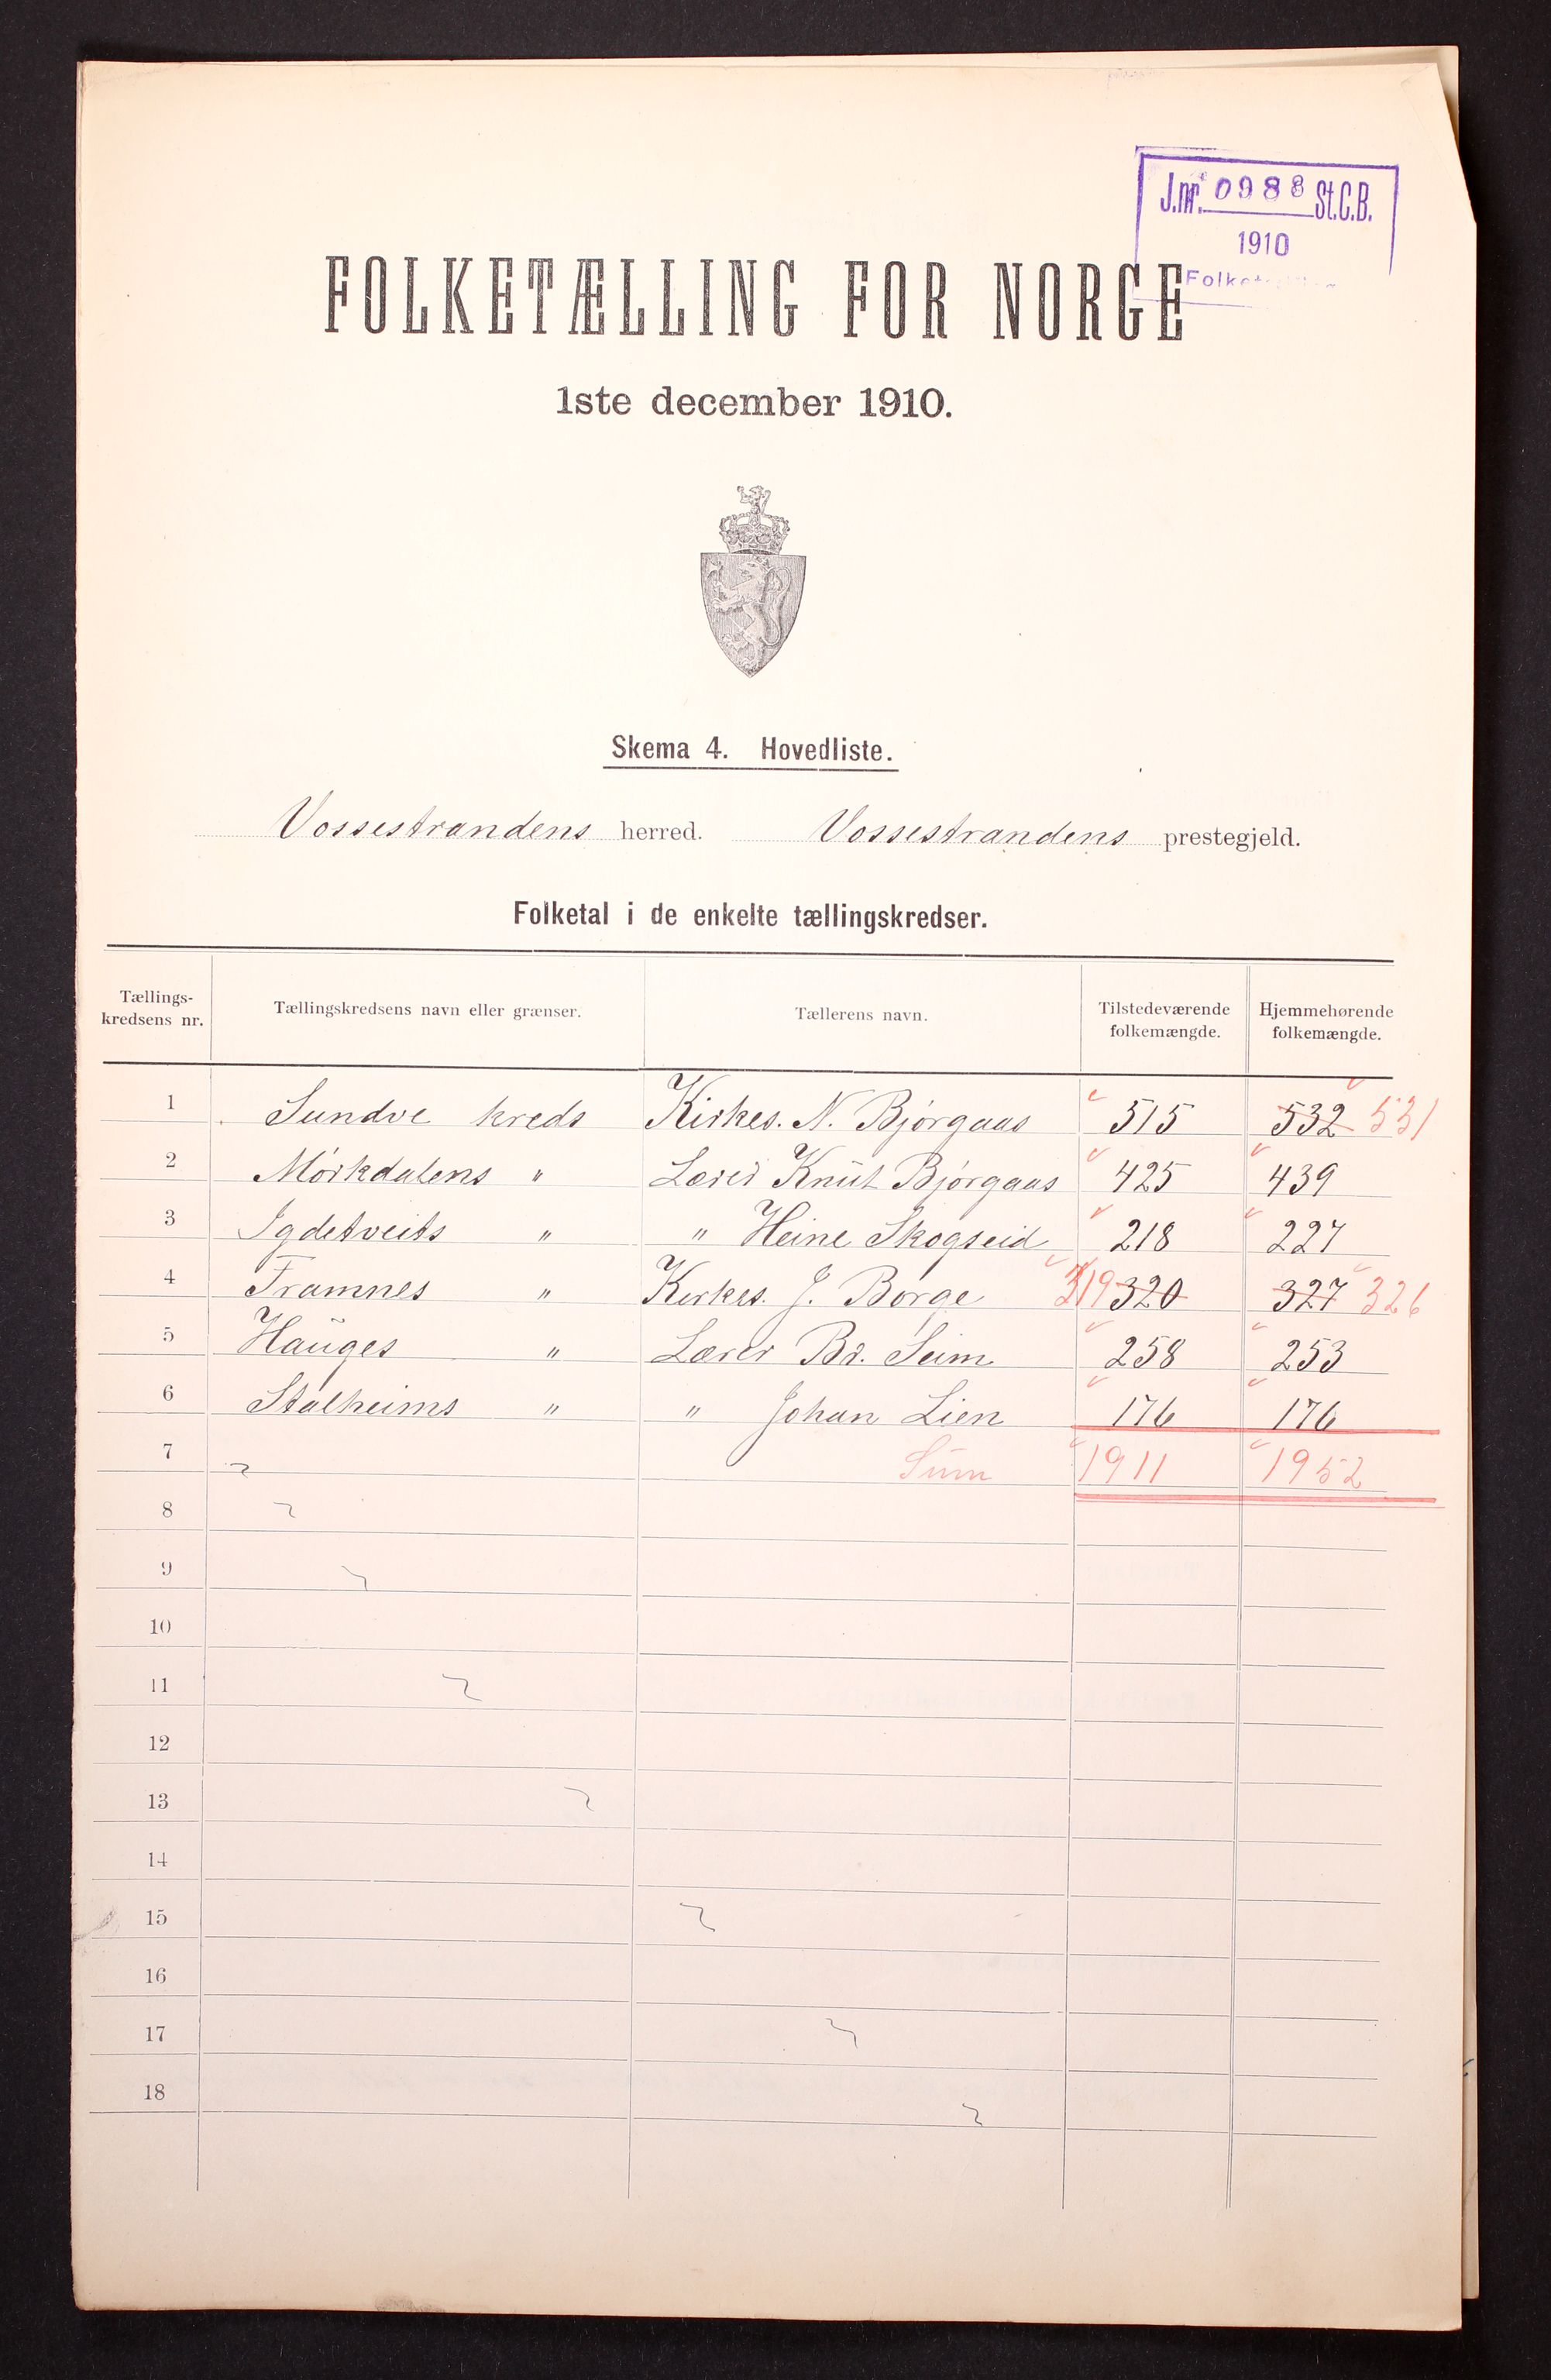 J.nr. 0988 St.C.B.
1910
FOLKETÆLLING FOR NORGE
1ste december 1910.
Skema 4. Hovedliste.
Vossestrandens herred. Vossestrandens prestegjeld.
Folketal i de enkelte tællingskredser.
Tællings-kredsens nr. Tællingskredsens navn eller grænser. Tællerens navn. Tilstedeværende folkemængde. Hjemmehørende folkemængde.
1 Sundve kreds Kirkes. N. Bjørgaas 515 532 531
2 Mörkdalens " Lærer Knut Bjørgaas 425 439
3 Igdetveits " " Heine Skogseid 218 227
4 Framnes " Kirkes. J. Børge 319 320 327 326
5 Hauges " Lærer Br. Seim 258 253
6 Stalheims " " Johan Lien 176 176
7 Sum 1911 1952
8
9
10
11
12
13
14
15
16
17
18